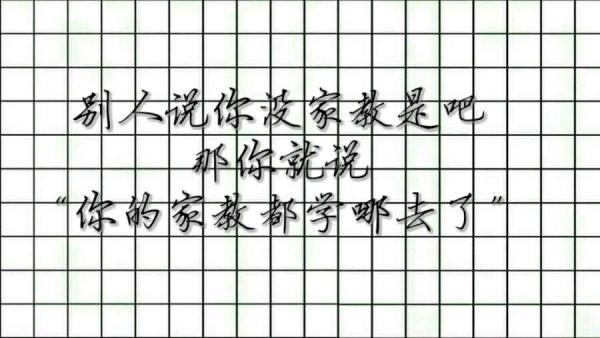 别人说你没家教是吧
那你就说
“你的家教都学哪去了”